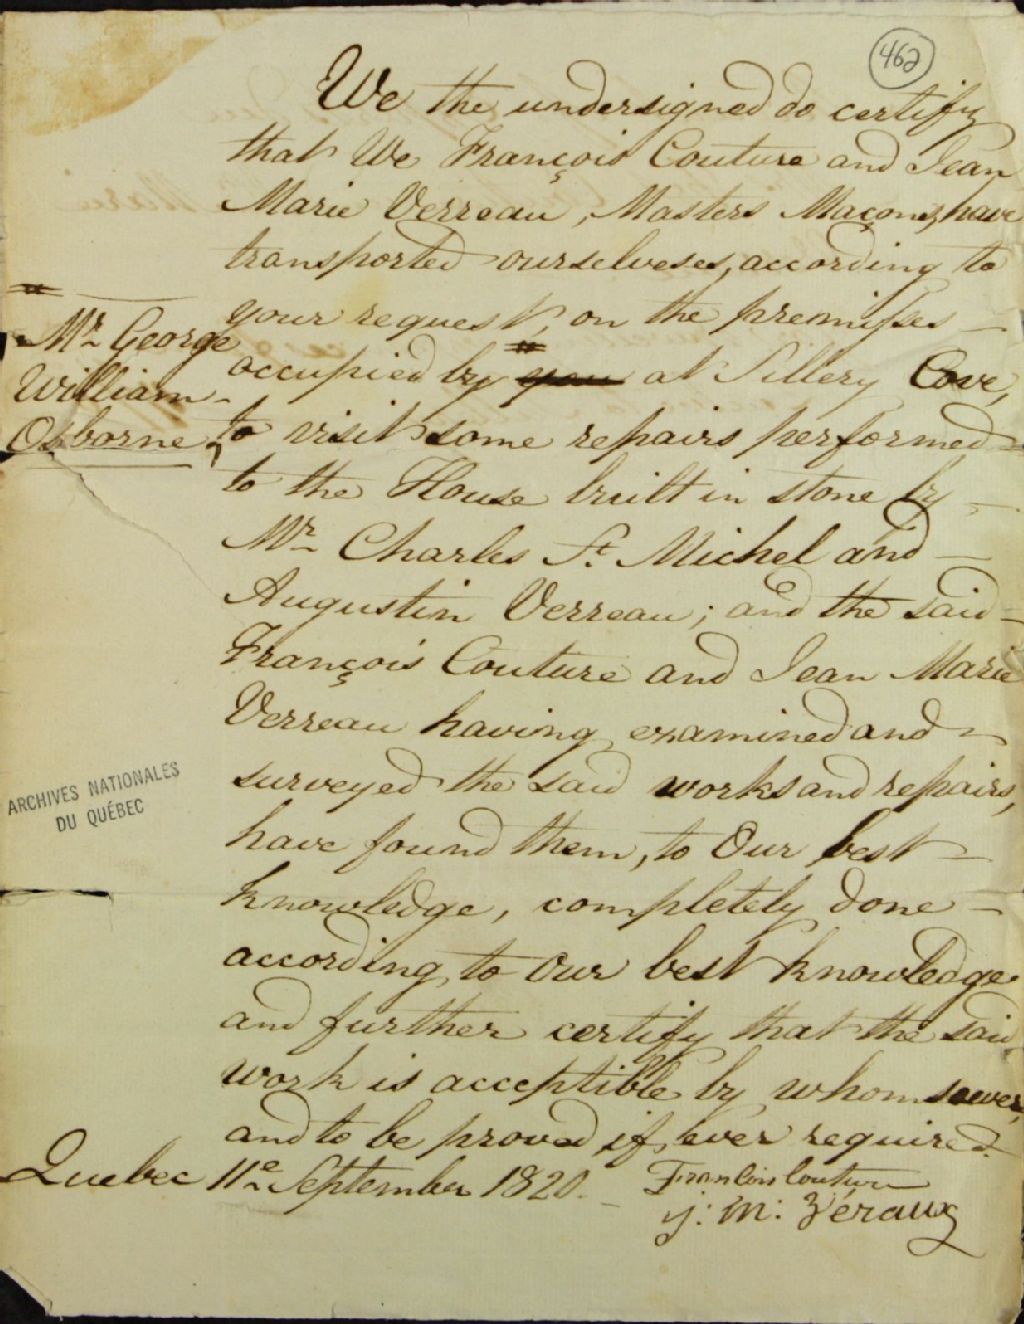 462
We the undersigned do certify
that We François Couture and Jean
Marie Verreau, Masters Maçons, have
transported ourselveses, according to
your request, on the premisses
occupied by you at Sillery Cove,
Mr. George
William
Osborne
to visit some repairs performed
to the House built in stone by
Mr. Charles St. Michel and
Augustin Verreau; and the said
François Couture and Jean Marie
Verreau having examined and
surveyed the said works and repairs,
have found them, to Our best
knowledge, completely done
according to Our best knowledge
and further certify that the said
work is acceptible by whomsoever,
and to be proved if ever required.
Quebec 11e September 1820.
Francois Couture
j: m: Véraux
ARCHIVES NATIONALES
DU QUÉBEC